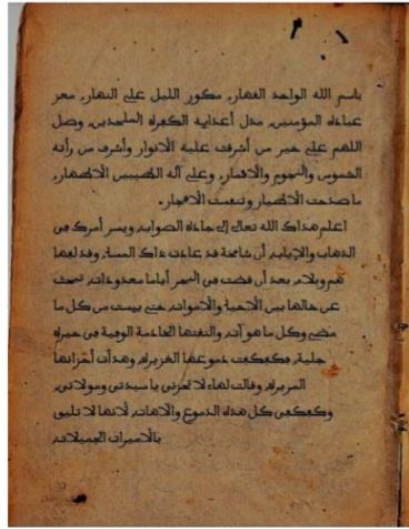 باسم الله الواحد القهار، مكور الليل على النهار، معز
عباده المؤمنين، مذل أعدايه الكفرة الملحدين، وصل
اللهم على خير من أشرقت عليه الأنوار وأشرف من رأته
الشموس والنجوم والأقمار، وعلى آله الطيبين الأطهار،
ما صدحت الأطيار وتنفست الأفجار.
اعلم هداك الله تعالى إلى جادة الصواب، ويسر أمرك في
الذهاب والإياب، أن شامخة قد عادت ذاك المساء وقد لفها
هم وبلاء، بعد أن قضت في البحر أياما معدودات، تبحث
عن خالها بين الأحياء والأموات، حتى يئست من كل ما
مضى وكل ما هو آت، والتقتها الخادمة الوفية في حيرة
جلية، فكفكفت دموعها الغزيرة وهدأت أحزانها
المريرة، وقالت لها، لا تحزني يا سيدتي ومولاتي،
وكفكفي كل هذه الدموع والآهات، لأنها لا تليق
بالأميرات الجميلات،